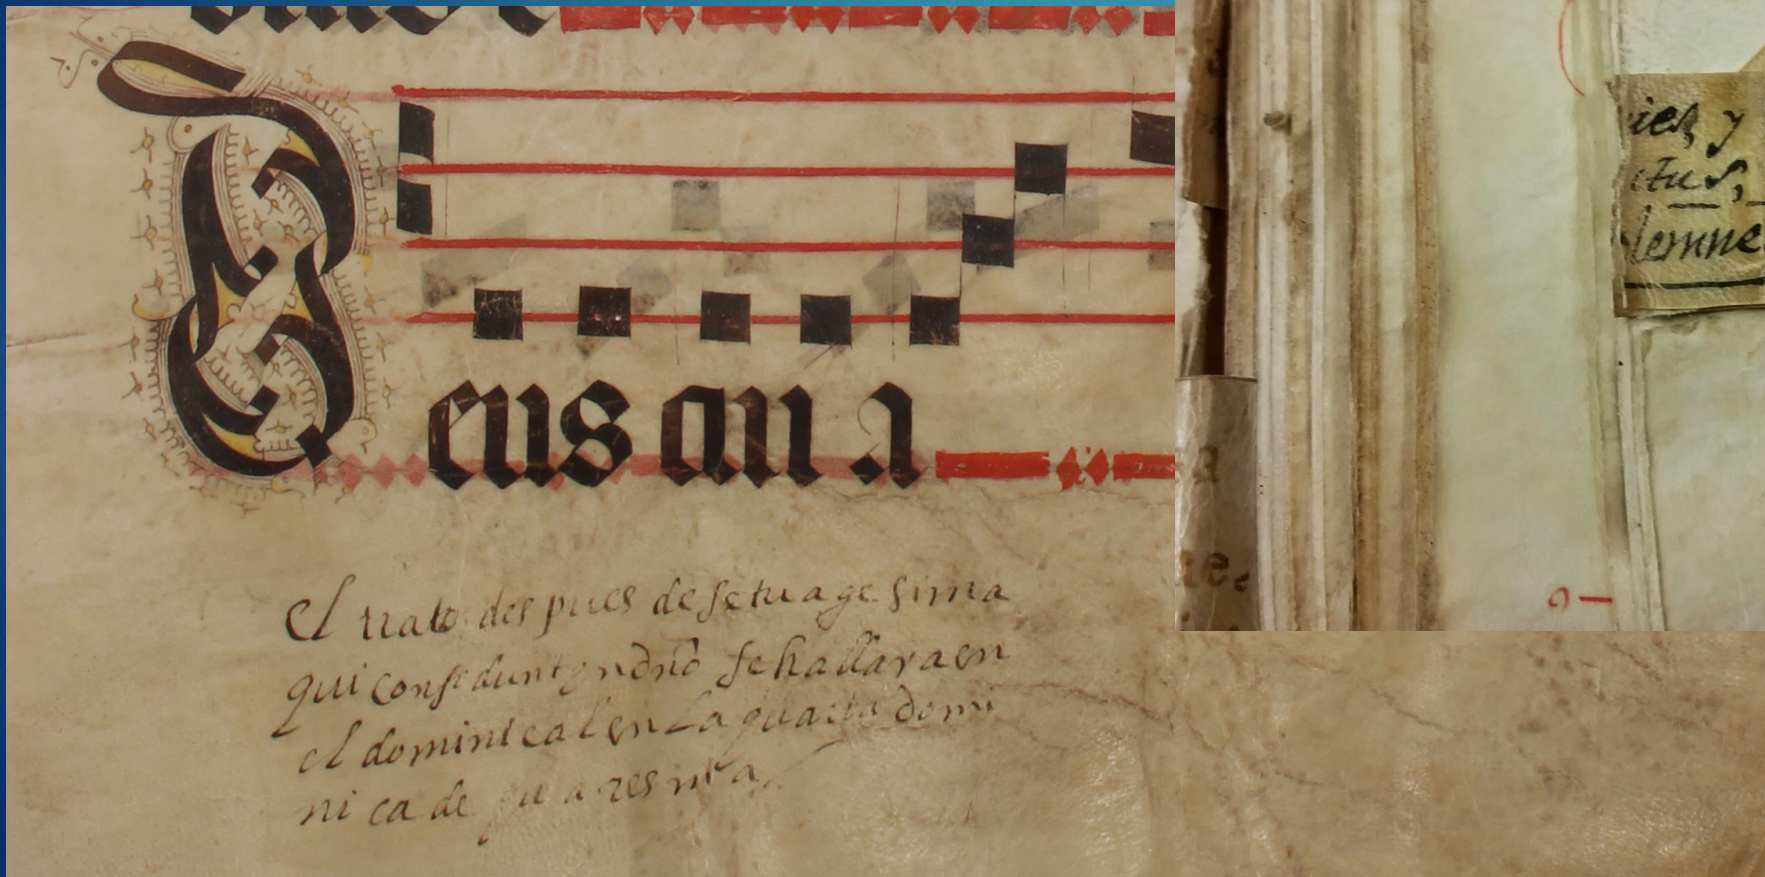 Deus au a
El trato des pues de setuagesima
qui confidunt yn dño se hallara en
el dominical en La quarta domi
nica de quaresma
y
ctus,
lemne